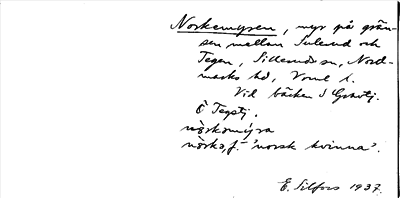 Norkemyren, myr på grän-
sen mellan Sulerud och
Tegen, Sillerud sn, Nord-
marks hd, Vrml l.
Vid bäcken S Gravtj.
Ö Tegstj.
nòrkomýra
nòrka, f. "norsk kvinna".
E. Silfors 1937.